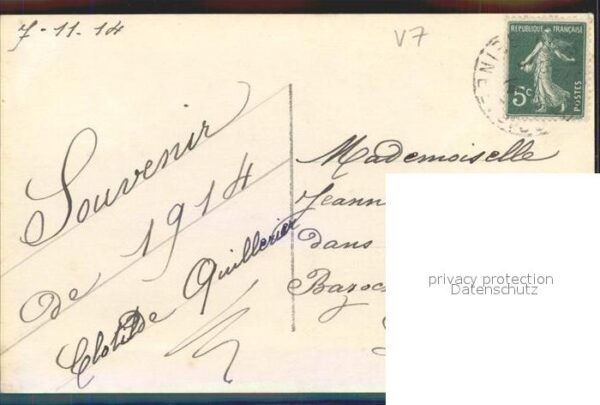 7-11.14
V7
REPUBLIQUE FRANÇAISE
5c
POSTES
Souvenir
de 1914
Clotilde Quillerier
Mademoiselle
Jeann
dans
Bazoc
privacy protection
Datenschutz